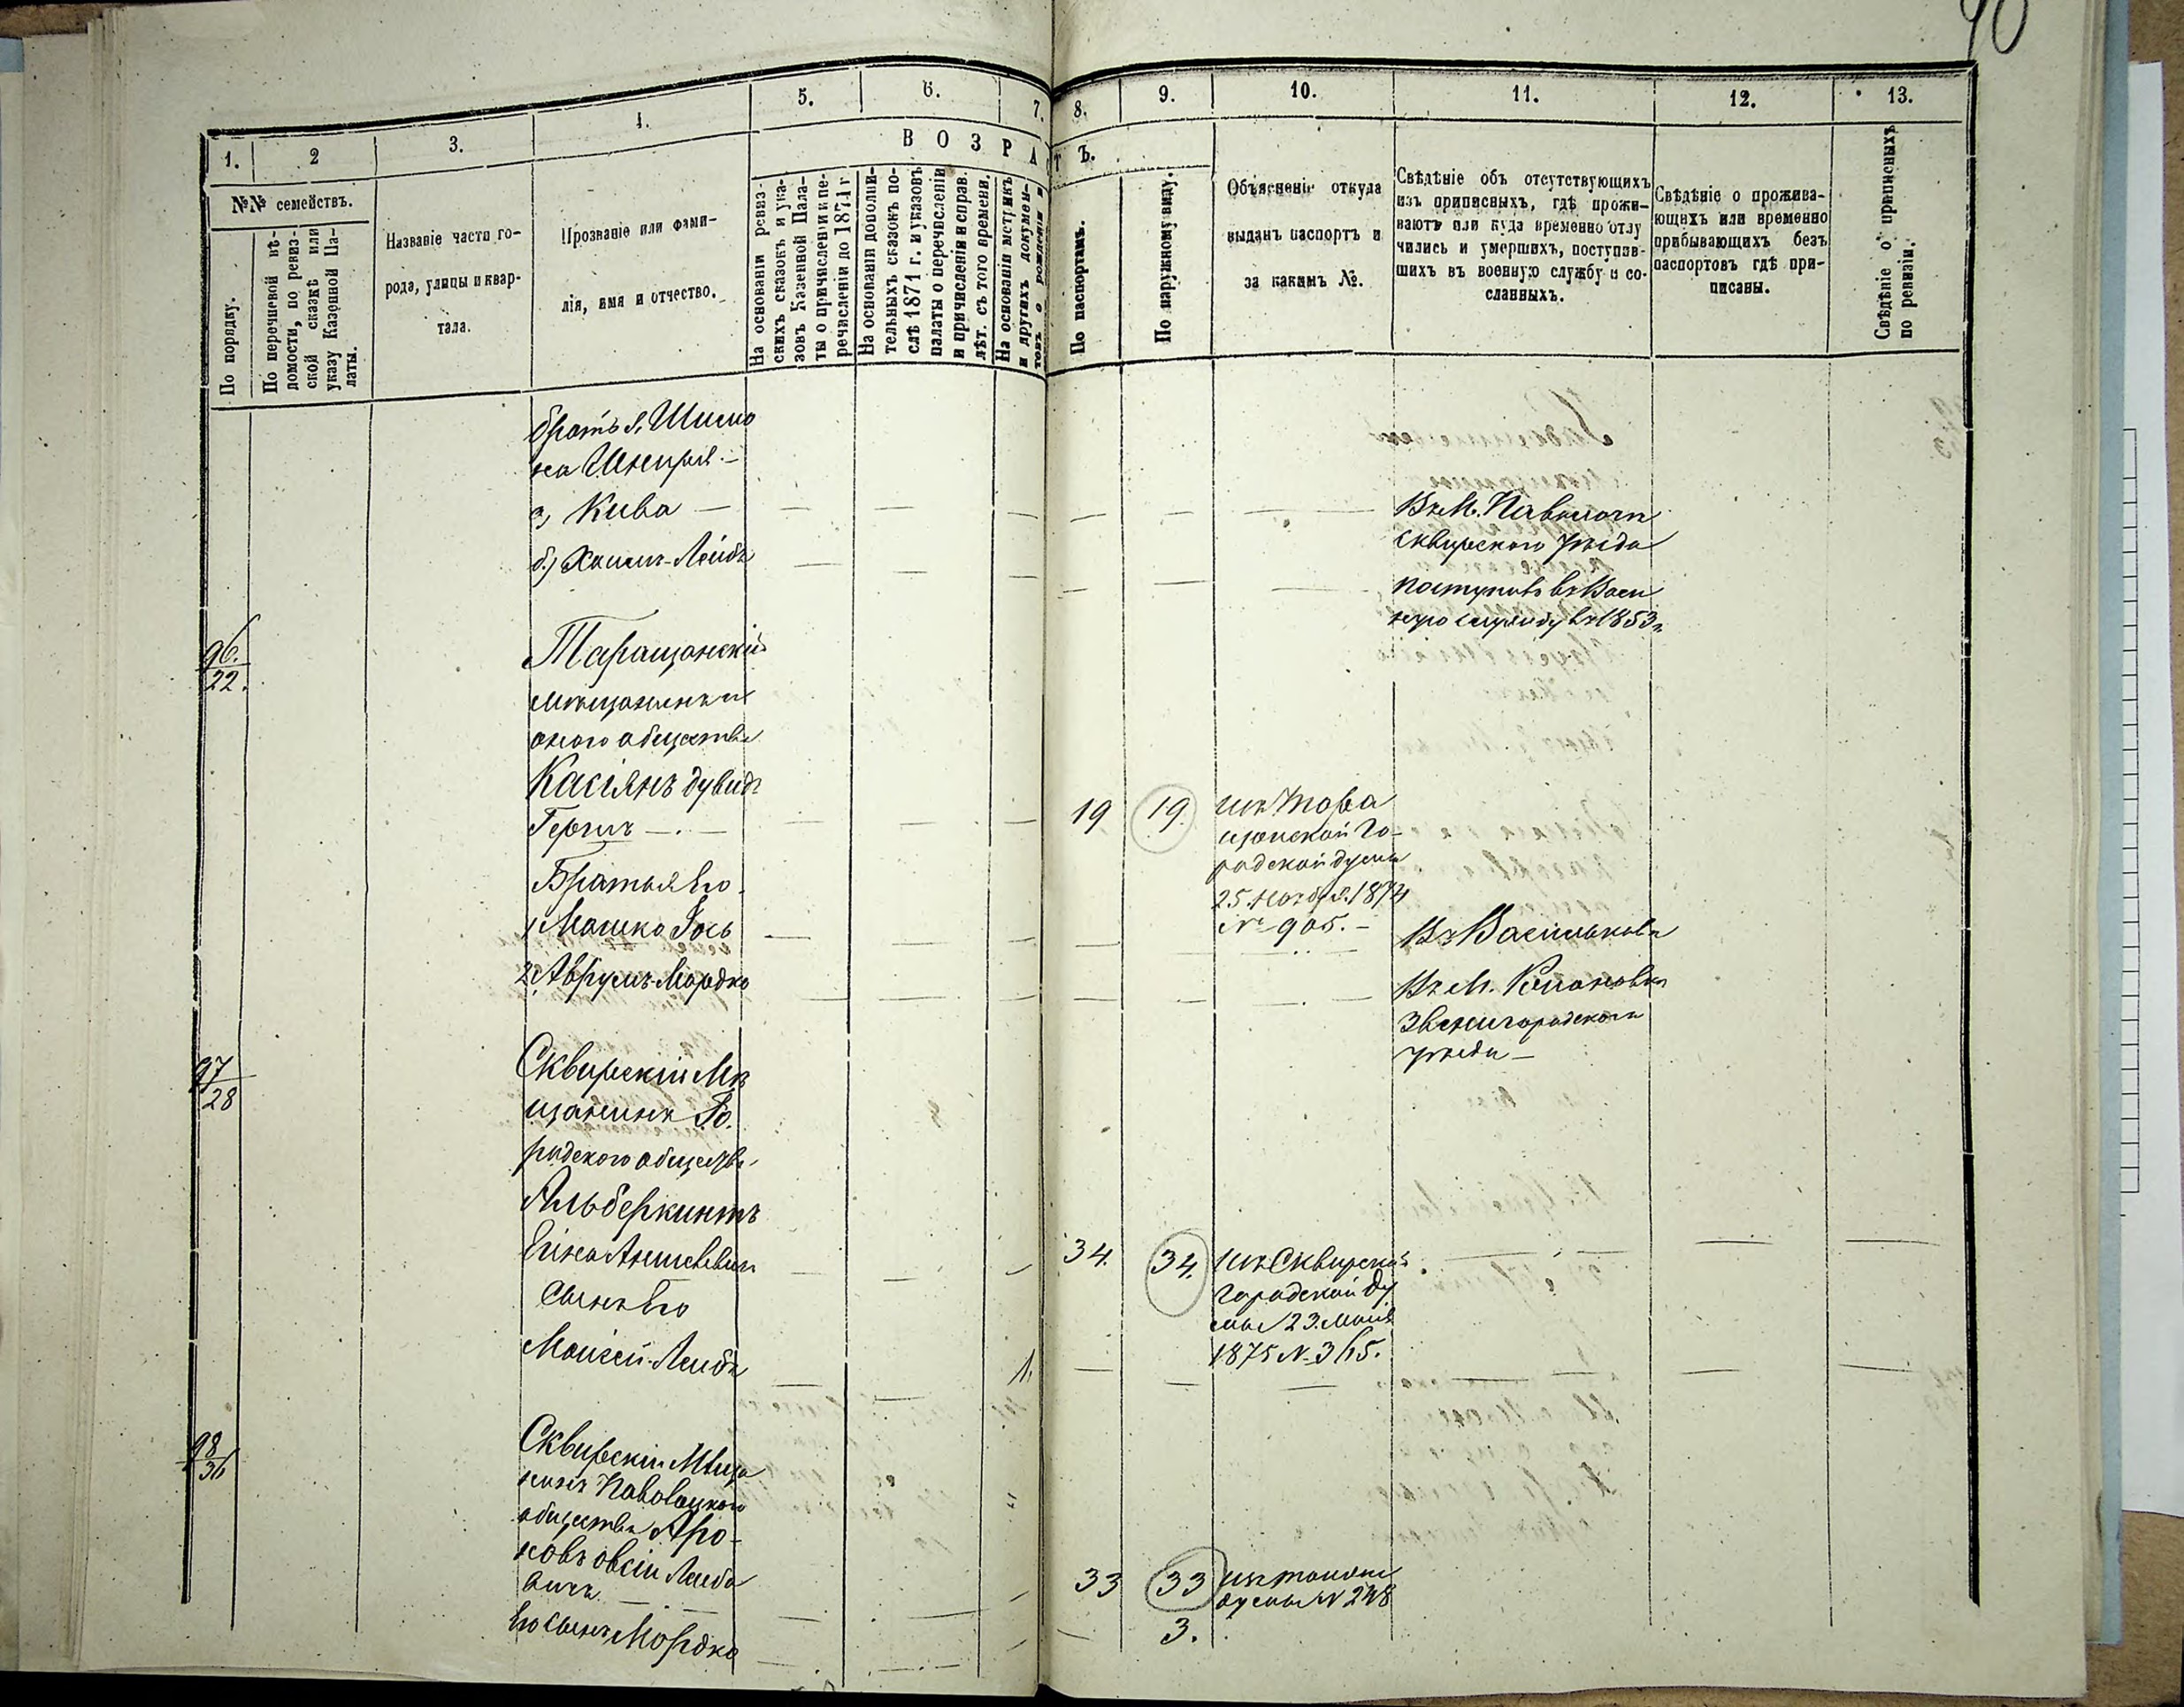 90
1.
2
3.
4.
5.
6.
7.
8.
9.
10.
11.
12.
13.
№№ семействъ.
По порядку.
По перечневой вѣ-
домости, по ревиз-
ской сказкѣ или
указу Казенной Па-
латы.
Названіе части го-
рода, улицы и квар-
тала.
Прозваніе или фами-
лія, имя и отчество.
ВОЗРАСТЪ.
На основаніи ревиз-
скихъ сказокъ и ука-
зовъ Казенной Пала-
ты о причисленіи и пе-
речисленіи до 1871 г.
На основаніи дополни-
тельныхъ сказокъ по-
слѣ 1871 г. и указовъ
палаты о перечисленіи
и причисленіи и справ.
лѣт. съ того времени.
На основаніи метрикъ
и другихъ докумен-
товъ о рожденіи и
По паспортамъ.
По наружному виду.
Объясненіе откуда
выданъ паспортъ и
за какимъ №.
Свѣдѣніе объ отсутствующихъ
изъ приписныхъ, гдѣ прожи-
ваютъ или куда временно отлу
чились и умершихъ, поступив-
шихъ въ военную службу и со-
сланныхъ.
Свѣдѣніе о прожива-
ющихъ или временно
прибывающихъ безъ
паспортовъ гдѣ при-
писаны.
Свѣдѣніе о приписныхъ
по ревизіи.
братья Шимо
на
а) Кива
Въ М. Паволочи
Сквирскаго уѣзда
б.) Хаимъ-Лейбъ
поступилъ въ Воен
ную службу въ 1853 г.
96.
22.
Таращанскій
мѣщанинъ
оного общества
Касіянъ Дувидъ
Гершъ
19
19.
изъ Тара
щанской Го-
родской думы
25. Ноября. 1874
№ 905.
Братья Его
1) Мошко Іось
Въ Васильковѣ
2) Аврумъ-Мордко
Въ М.
Звенигородскаго
уѣзда
97
28
Сквирскій Мѣ
щанинъ Го.
родского общества
Альберкинтъ
34.
34.
изъ Сквирской
Городской Ду
мы 23. Маія
1875 № 365.
Сынъ Его
Моисей-Лейбъ
1.
98
36
Сквирскій Мѣща
нинъ Паволоцкого
общества Аро-
новъ Овсій Лейбо
вичъ
33
33
изъ тойже
думы № 248
Его сынъ Мордко
3.